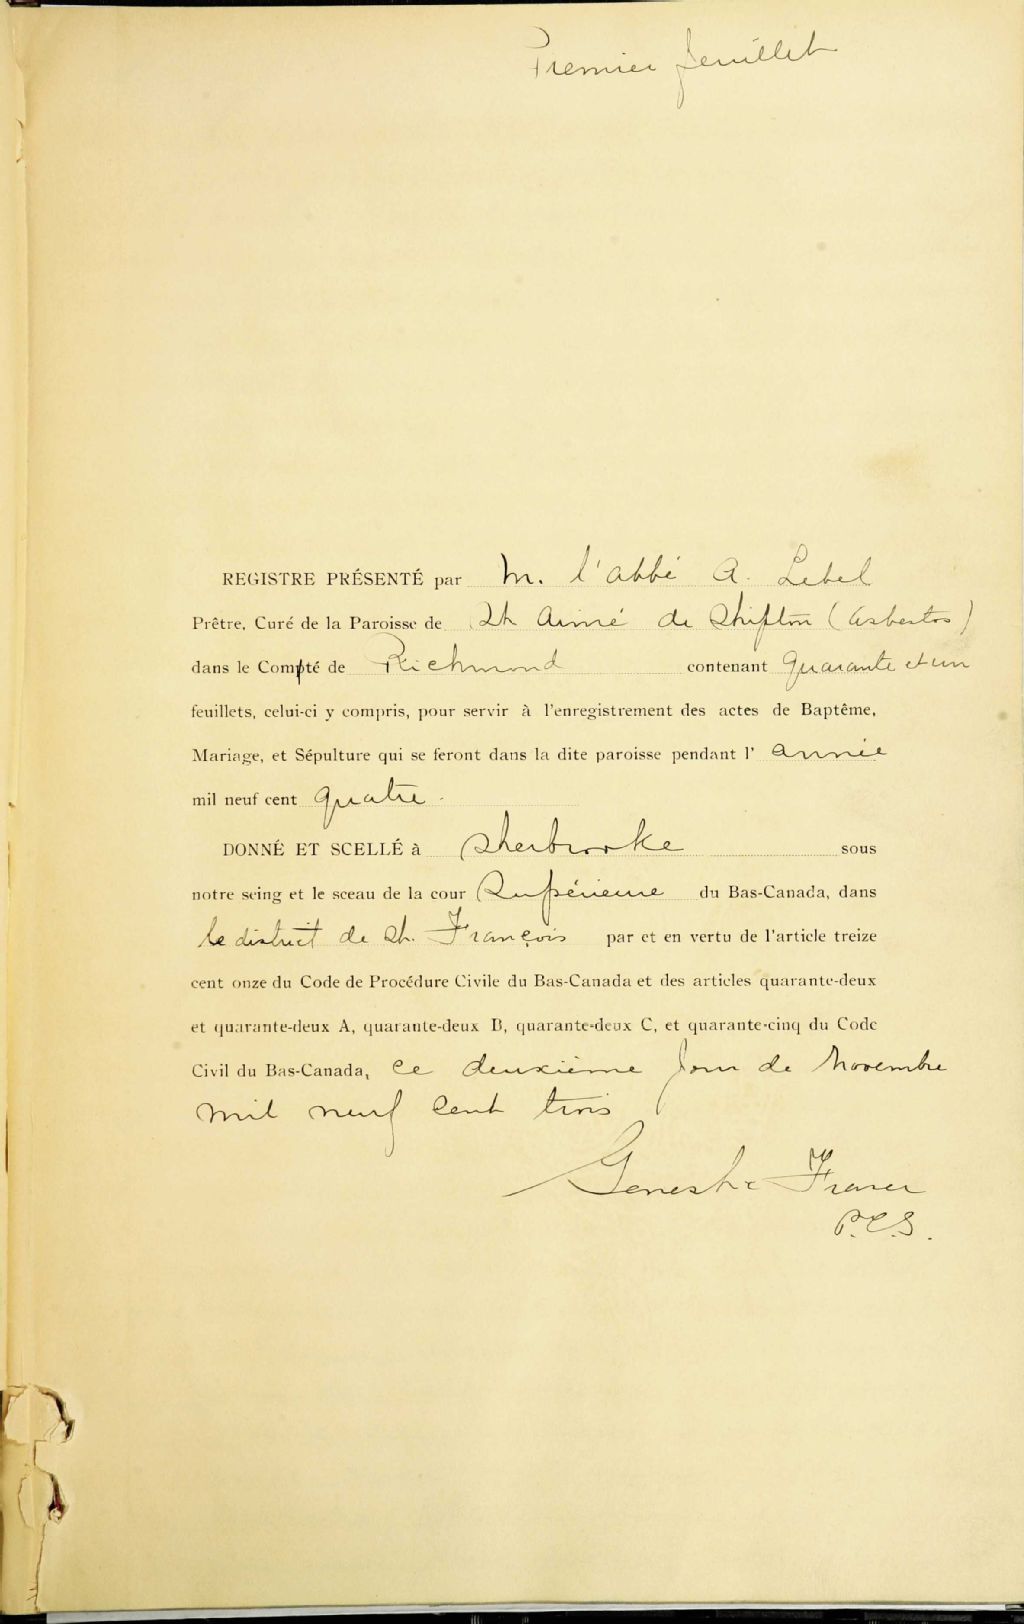 Premier feuillet
REGISTRE PRÉSENTÉ par M. l'abbé A. Lebel
Prêtre, Curé de la Paroisse de St Aimé de Shipton (Asbestos)
dans le Compté de Richmond contenant Quarante et un
feuillets, celui-ci y compris, pour servir à l'enregistrement des actes de Baptême,
Mariage, et Sépulture qui se feront dans la dite paroisse pendant l' année
mil neuf cent quatre.
DONNÉ ET SCELLÉ à Sherbrooke sous
notre seing et le sceau de la cour Supérieure du Bas-Canada, dans
le district de St. François par et en vertu de l'article treize
cent onze du Code de Procédure Civile du Bas-Canada et des articles quarante-deux
et quarante-deux A, quarante-deux B, quarante-deux C, et quarante-cinq du Code
Civil du Bas-Canada, ce deuxième jour de Novembre
mil neuf cent trois
Genest & Fraser
P.C.S.